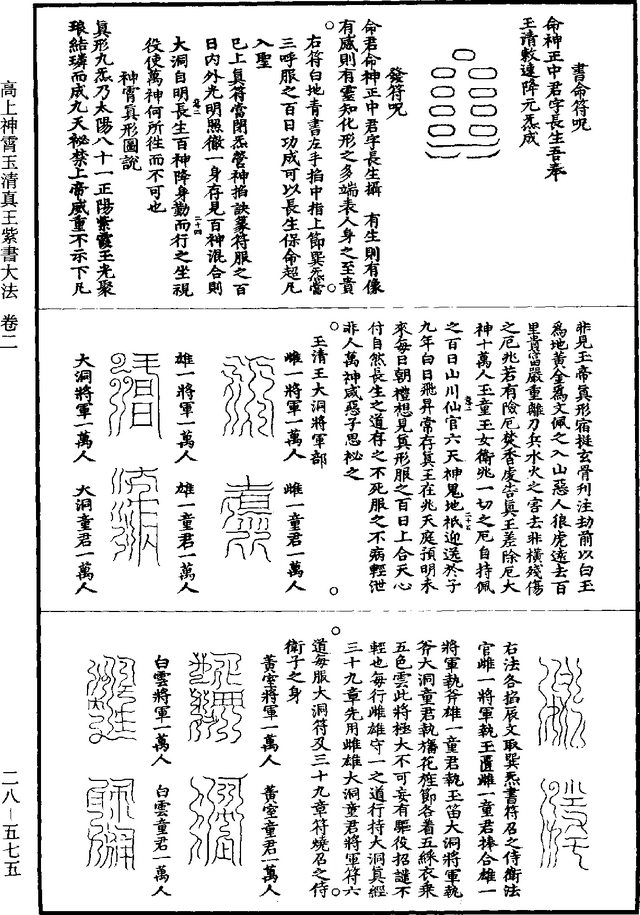 高上神霄玉清真王紫書大法 卷二
二八—五七五
書命符呪
命神正中君字長生吾奉
玉清敕速降元炁成
發符呪
命君命神正中君字長生攝 有生則有像
有威則有靈知化形之多端表人身之至貴
右符白地青書左手掐中指上節巽炁當
三呼服之百日功成可以長生保命超凡
入聖
已上真符當閉炁營神掐訣篆符服之百
日內外光明照徹一身存見百神混合則
大洞自明長生百神降身勤而行之坐視
役使萬神何所往而不可也
二十四
神霄真形圖說
真形九炁乃太陽八十一正陽紫霞玉光聚
琅結璘而成九天祕禁上帝威重不示下凡
非見玉帝真形宿挺玄骨刋注劫前以白玉
為地黃金為文佩之入山惡人狼虎遠去百
里貴富嚴重離刀兵水火之害去非橫殘傷
之厄兆若有險厄焚香虔告真王差除厄大
神十萬人玉童玉女衛兆一切之厄自持佩
二十五
之百日山川仙官六天神鬼地祇迎送於子
九年白日飛昇常存真王在兆天庭預明未
來每日朝禮想見真形服之百日上合天心
付自然長生之道存之不死服之不病輕泄
非人萬神咸惡子思祕之
玉清王大洞將軍部
雌一將軍一萬人
雌一童君一萬人
雄一將軍一萬人
雄一童君一萬人
大洞將軍一萬人
大洞童君一萬人
右法各掐辰文取巽炁書符召之侍衛法
官雌一將軍執玉匱雌一童君捧合雄一
將軍執斧雄一童君執玉笛大洞將軍執
斧大洞童君執旛花旌節各着五綵衣乘
五色雲此將極大不可妄有驅役招譴不
輕也每行雌雄守一之道行持大洞真經
三十九章先用雌雄大洞童君將軍符六
道每服大洞符及三十九章符燒召之侍
衛子之身
黃室將軍一萬人
黃室童君一萬人
白雲將軍一萬人
白雲童君一萬人